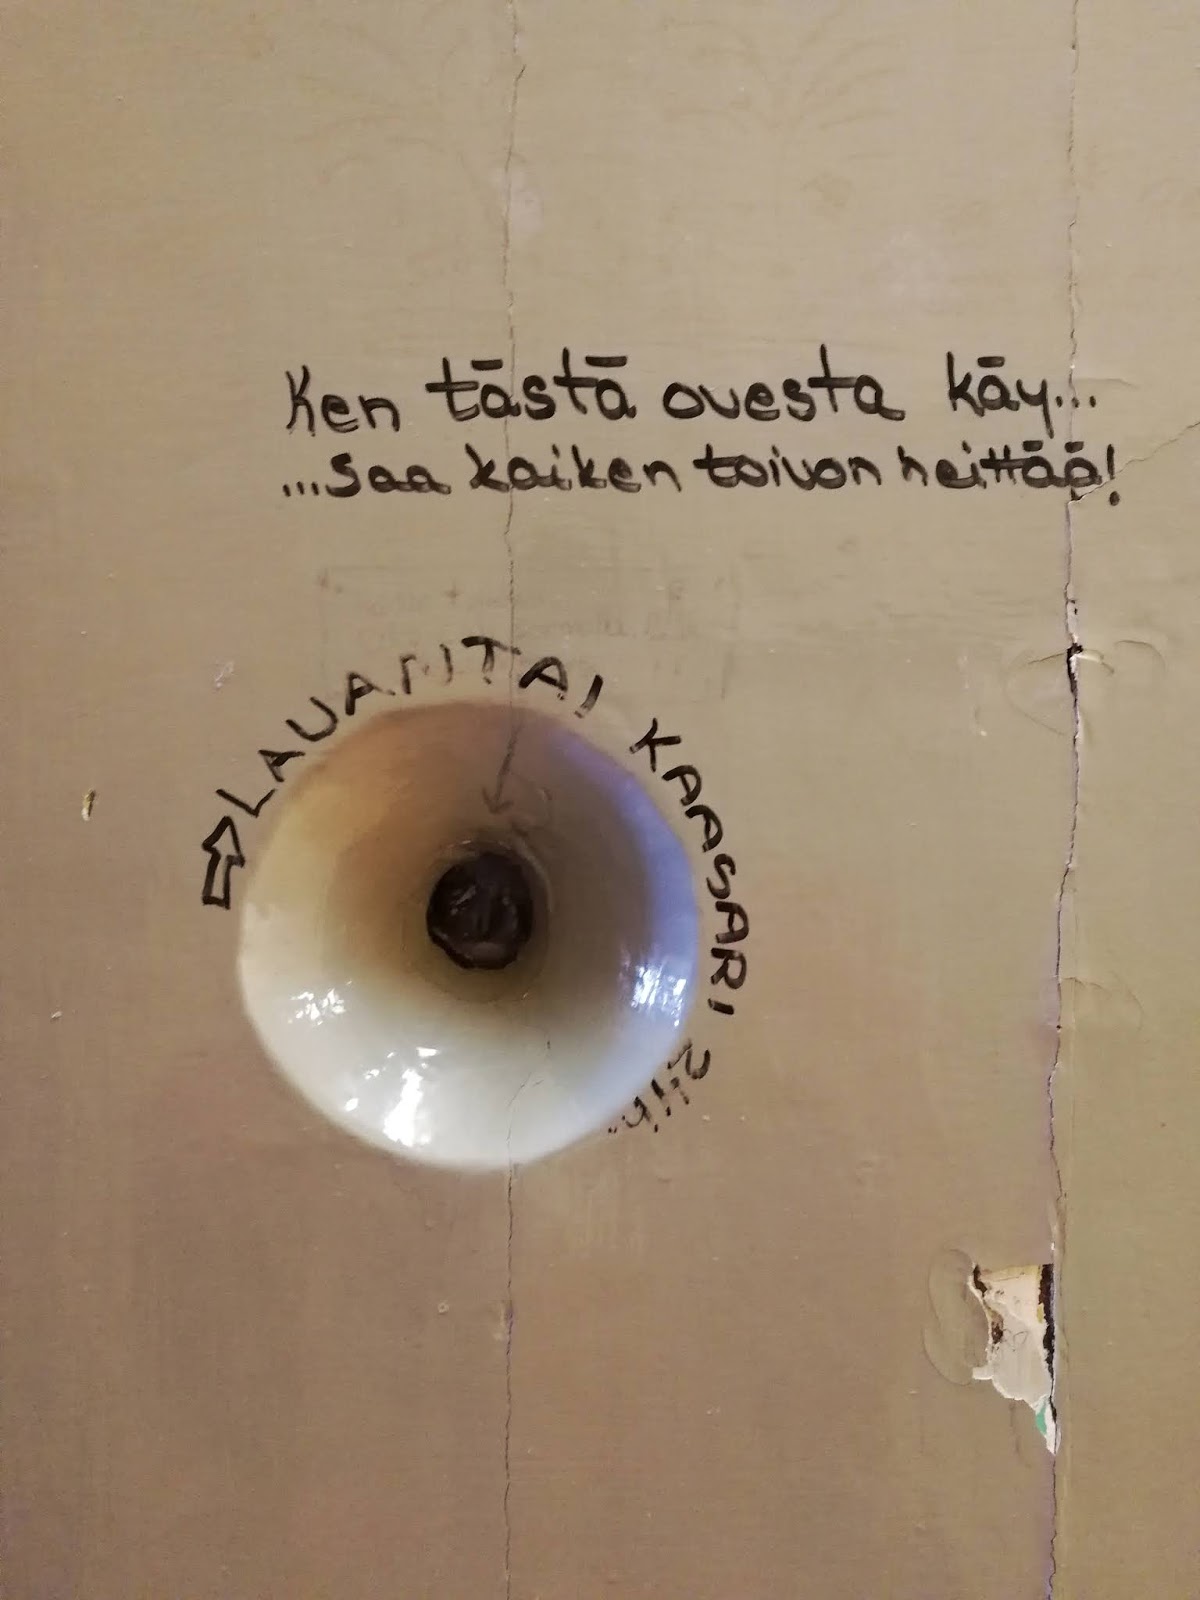 Ken tästä ovesta käy...
...saa kaiken toivon heittää!
LAUANTAI KAASARI